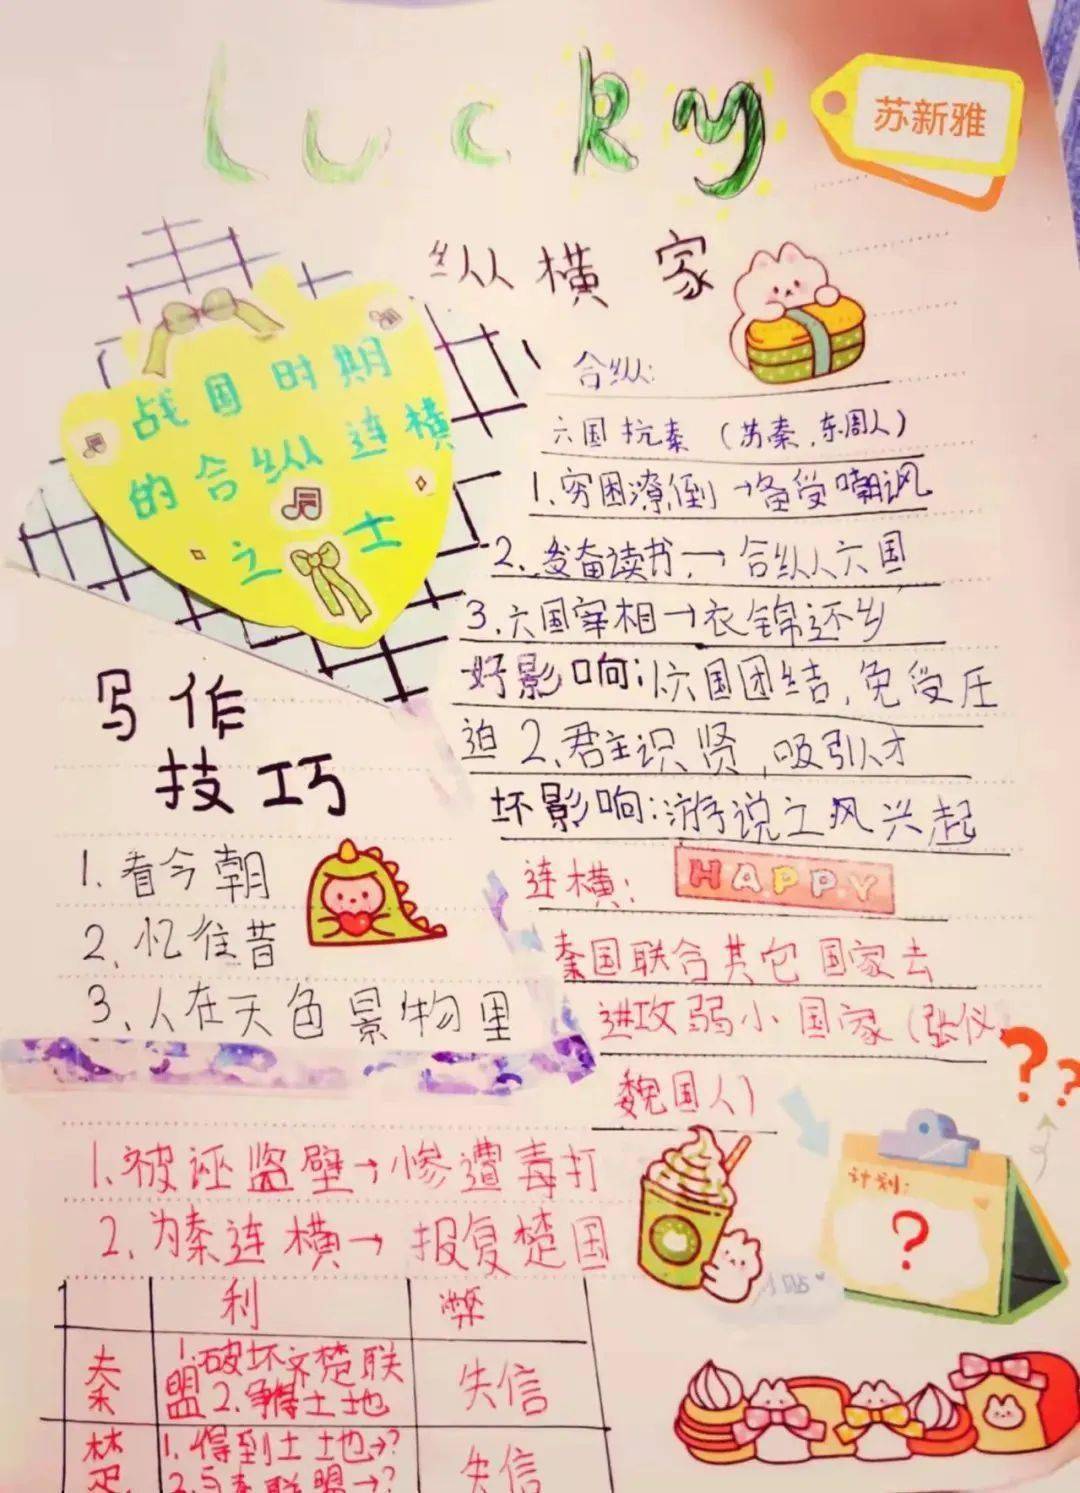 Lucky
苏新雅
纵横家
战国时期
的合纵连横
之士
合纵:
六国抗秦（苏秦,东周人）
1.穷困潦倒→备受嘲讽
2.发奋读书→合纵六国
3.六国宰相→衣锦还乡
好影响:1.六国团结,免受压
迫2.君主识贤,吸引人才
坏影响:游说之风兴起
写作
技巧
1.看今朝
2.忆往昔
3.人在天色景物里
连横:
HAPPY
秦国联合其它国家去
进攻弱小国家（张仪
魏国人）
??
1.被诬盗璧→惨遭毒打
2.为秦连横→报复楚国
计划:
?
利 弊
秦 1.破坏齐楚联盟 2.争得土地 失信
楚 1.得到土地→? 2.与秦联盟→? 失信